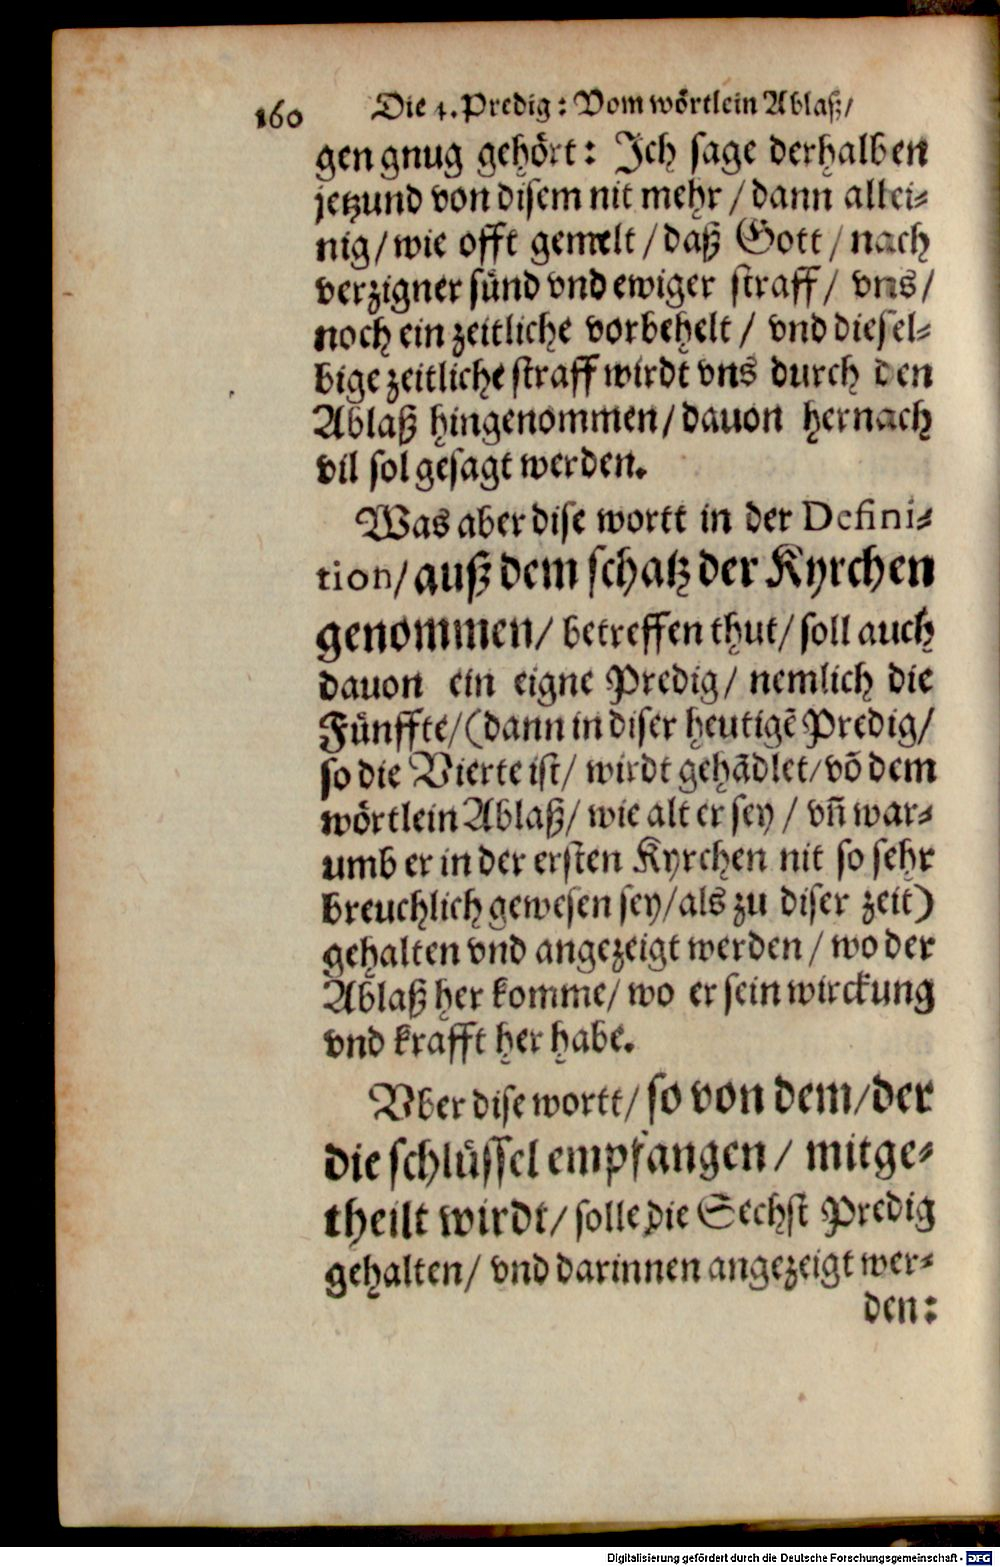 160 Die 4. Predig: Vom wörtlein Ablaß/
gen gnug gehört: Ich sage derhalben
jetzund von disem nit mehr / dann allei⸗
nig / wie offt gemelt / daß Gott / nach
verzigner sünd vnd ewiger straff / vns /
noch ein zeitliche vorbehelt / vnd diesel⸗
bige zeitliche straff wirdt vns durch den
Ablaß hingenommen / dauon hernach
vil sol gesagt werden.
Was aber dise wortt in der Defini⸗
tion / auß dem schatz der Kyrchen
genommen / betreffen thut / soll auch
dauon ein eigne Predig / nemlich die
Fünffte / (dann in diser heutigẽ Predig /
so die Vierte ist / wirdt gehãdlet / võ dem
wörtlein Ablaß / wie alt er sey / vñ war⸗
umb er in der ersten Kyrchen nit so sehr
breuchlich gewesen sey / als zu diser zeit)
gehalten vnd angezeigt werden / wo der
Ablaß her komme / wo er sein wirckung
vnd krafft her habe.
Vber dise wortt / so von dem / der
die schlüssel empfangen / mitge⸗
theilt wirdt / solle die Sechst Predig
gehalten / vnd darinnen angezeigt wer⸗
den:
Digitalisierung gefördert durch die Deutsche Forschungsgemeinschaft - DFG